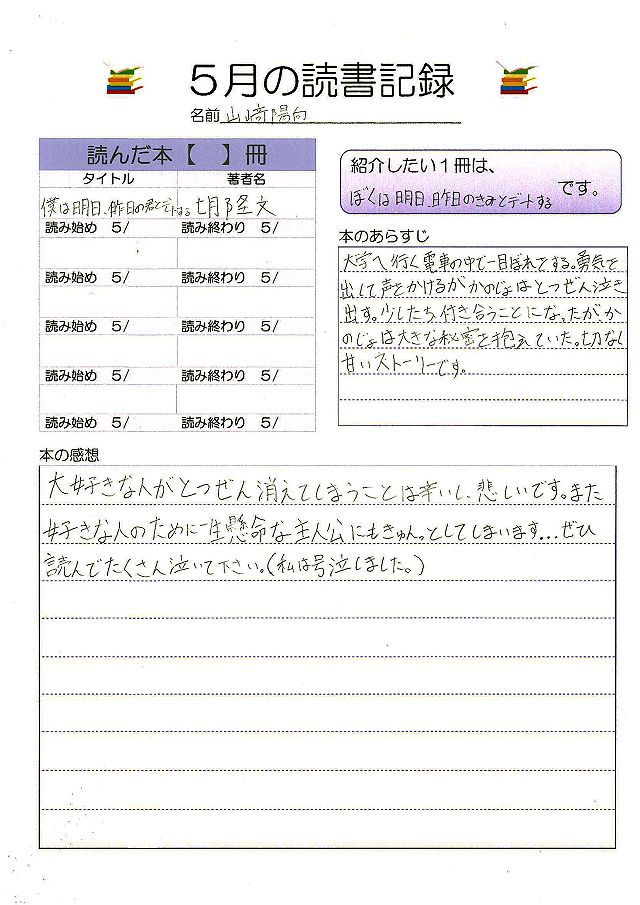 5月の読書記録
名前 山﨑陽向
読んだ本【 】冊
タイトル 著者名
僕は明日、昨日の君とデートする 七月隆文
読み始め 5/ 読み終わり 5/
読み始め 5/ 読み終わり 5/
読み始め 5/ 読み終わり 5/
読み始め 5/ 読み終わり 5/
読み始め 5/ 読み終わり 5/
紹介したい1冊は、
ぼくは明日、昨日のきみとデートする です。
本のあらすじ
大学へ行く電車の中で一目ぼれをする。勇気を
出して声をかけるがかのじょはとつぜん泣き
出す。少したち、付き合うことになった。だがか
のじょは大きな秘密を抱えていた。切なく
甘いストーリーです。
本の感想
大好きな人がとつぜん消えてしまうことは辛いし、悲しいです。また
好きな人のために一生懸命な主人公にもきゅんっとしてしまいます...ぜひ
読んでたくさん泣いて下さい。(私は号泣しました。)